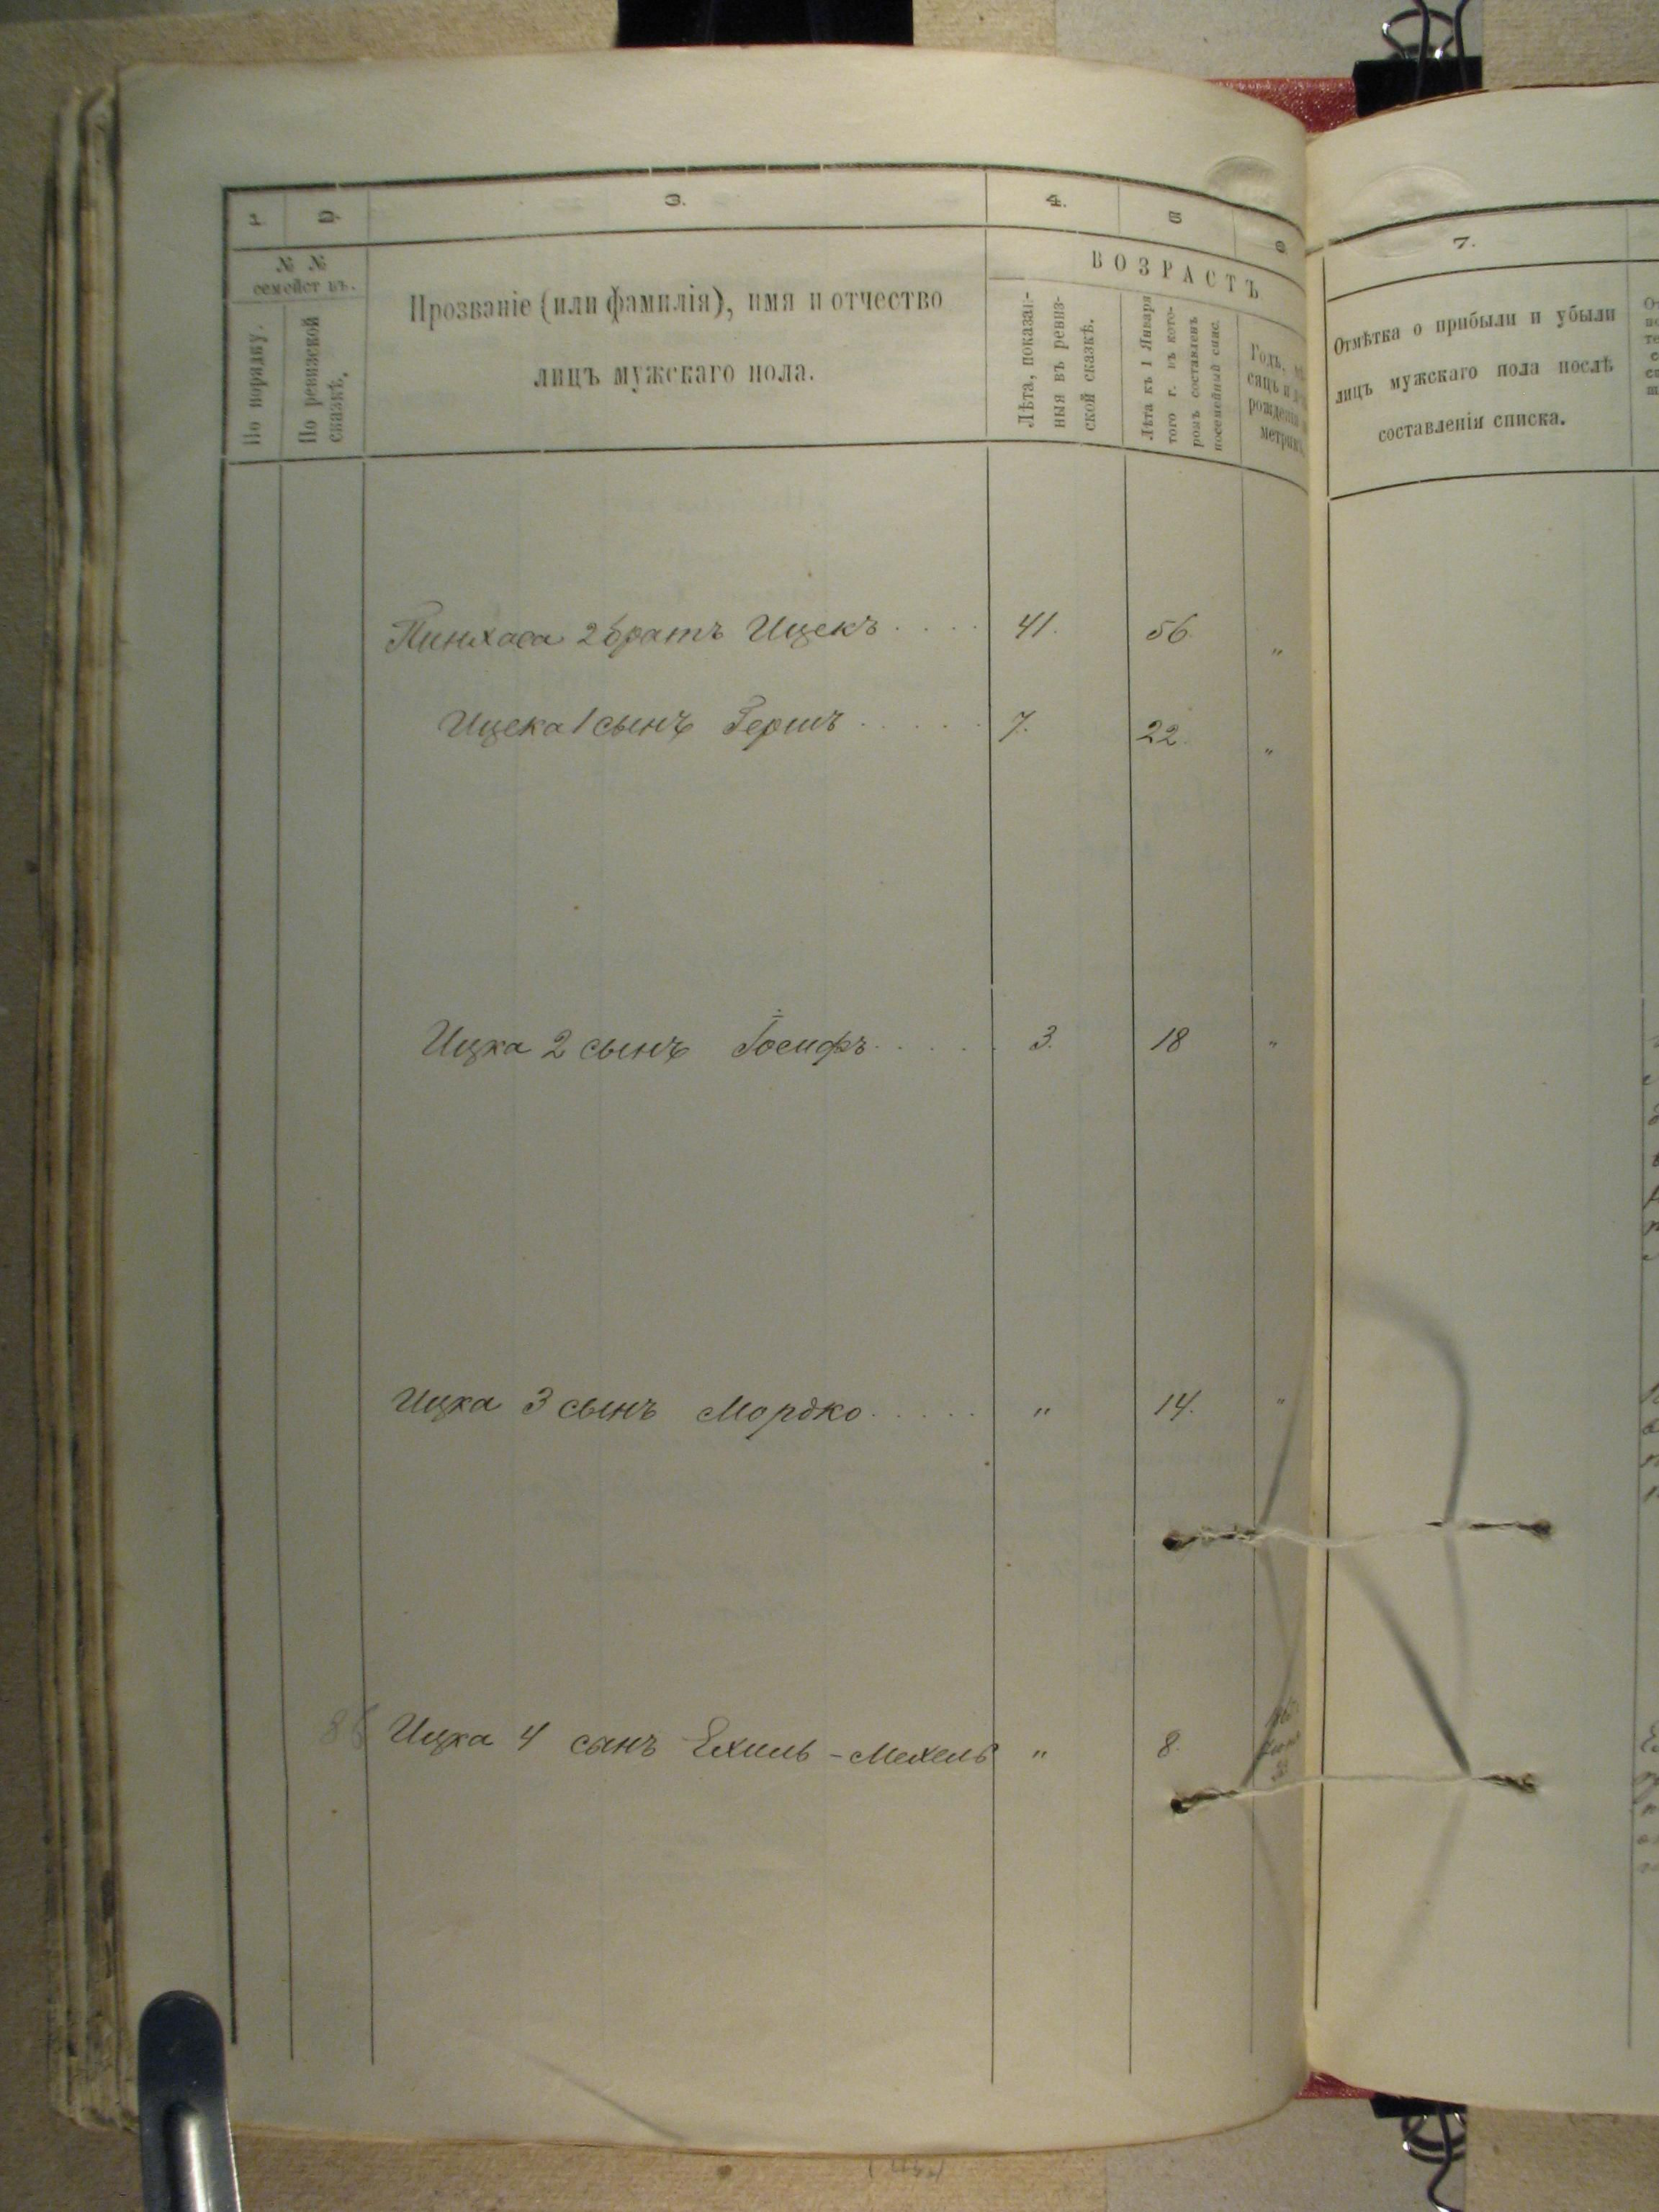 1
2.
3.
4.
5
6
7.
№ №
семействъ.
По порядку.
По ревизской
сказкѣ.
Прозваніе (или фамилія), имя и отчество
лицъ мужскаго пола.
ВОЗРАСТЪ
Лѣта, показан-
ныя въ ревиз-
ской сказкѣ.
Лѣта къ 1 Января
того г. въ кото-
ромъ составленъ
посемейный спис.
Годъ, мѣ
сяцъ и
рожденія
метрик
Отмѣтка о прибыли и убыли
лицъ мужскаго пола послѣ
составленія списка.
Пинхаса 2 братъ Ицекъ . . . . 41. 56. "
Ицека 1 сынъ Гершъ . . . . . 7. 22. "
Ицка 2 сынъ Іосифъ . . . . . 3. 18 "
Ицка 3 сынъ Мордко . . . . . " 14. "
Ицка 4 сынъ Ехиль-Мехель " 8.